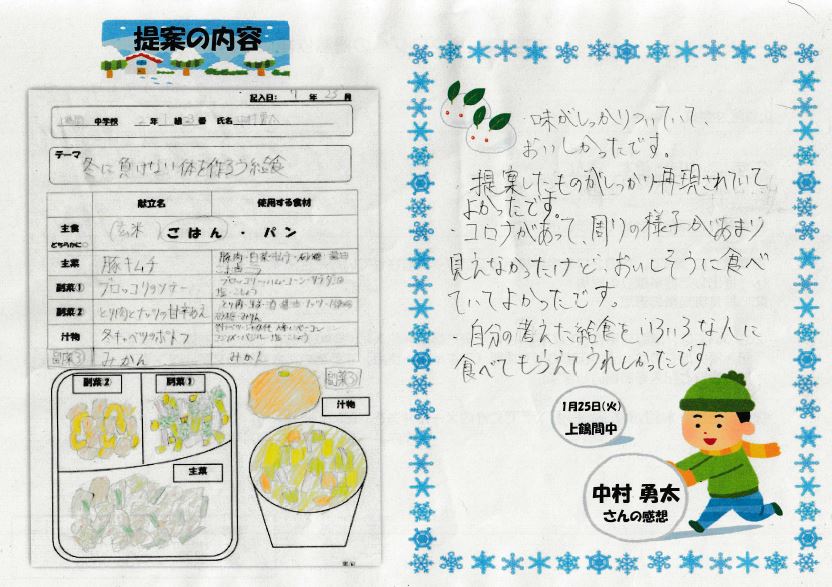 提案の内容
記入日: 7 年 23 月
中学校 2 年 組 23 番 氏名
テーマ
冬に負けない体を作ろう給食
献立名 使用する食材
主食 (玄米) ごはん ・ パン
どちらかに○
主菜 豚キムチ 豚肉・白菜・キムチ・砂糖・醤油
ごま油
副菜① ブロッコリのソテー ブロッコリー・ハム・コーン・サラダ油
塩・こしょう
副菜② とり肉とナッツの甘辛あえ
砂糖・みりん
汁物 冬キャベツのポトフ
コンソメ・塩・こしょう
副菜③ みかん みかん
副菜②
副菜①
副菜③
汁物
主菜
・味がしっかりついていて、
おいしかったです。
・提案したものがしっかり再現されていて
よかったです。
・コロナがあって、周りの様子があまり
見えなかったけど、おいしそうに食べ
ていてよかったです。
・自分の考えた給食をいろいろな人に
食べてもらえてうれしかったです。
1月25日(火)
上鶴間中
中村 勇太
さんの感想